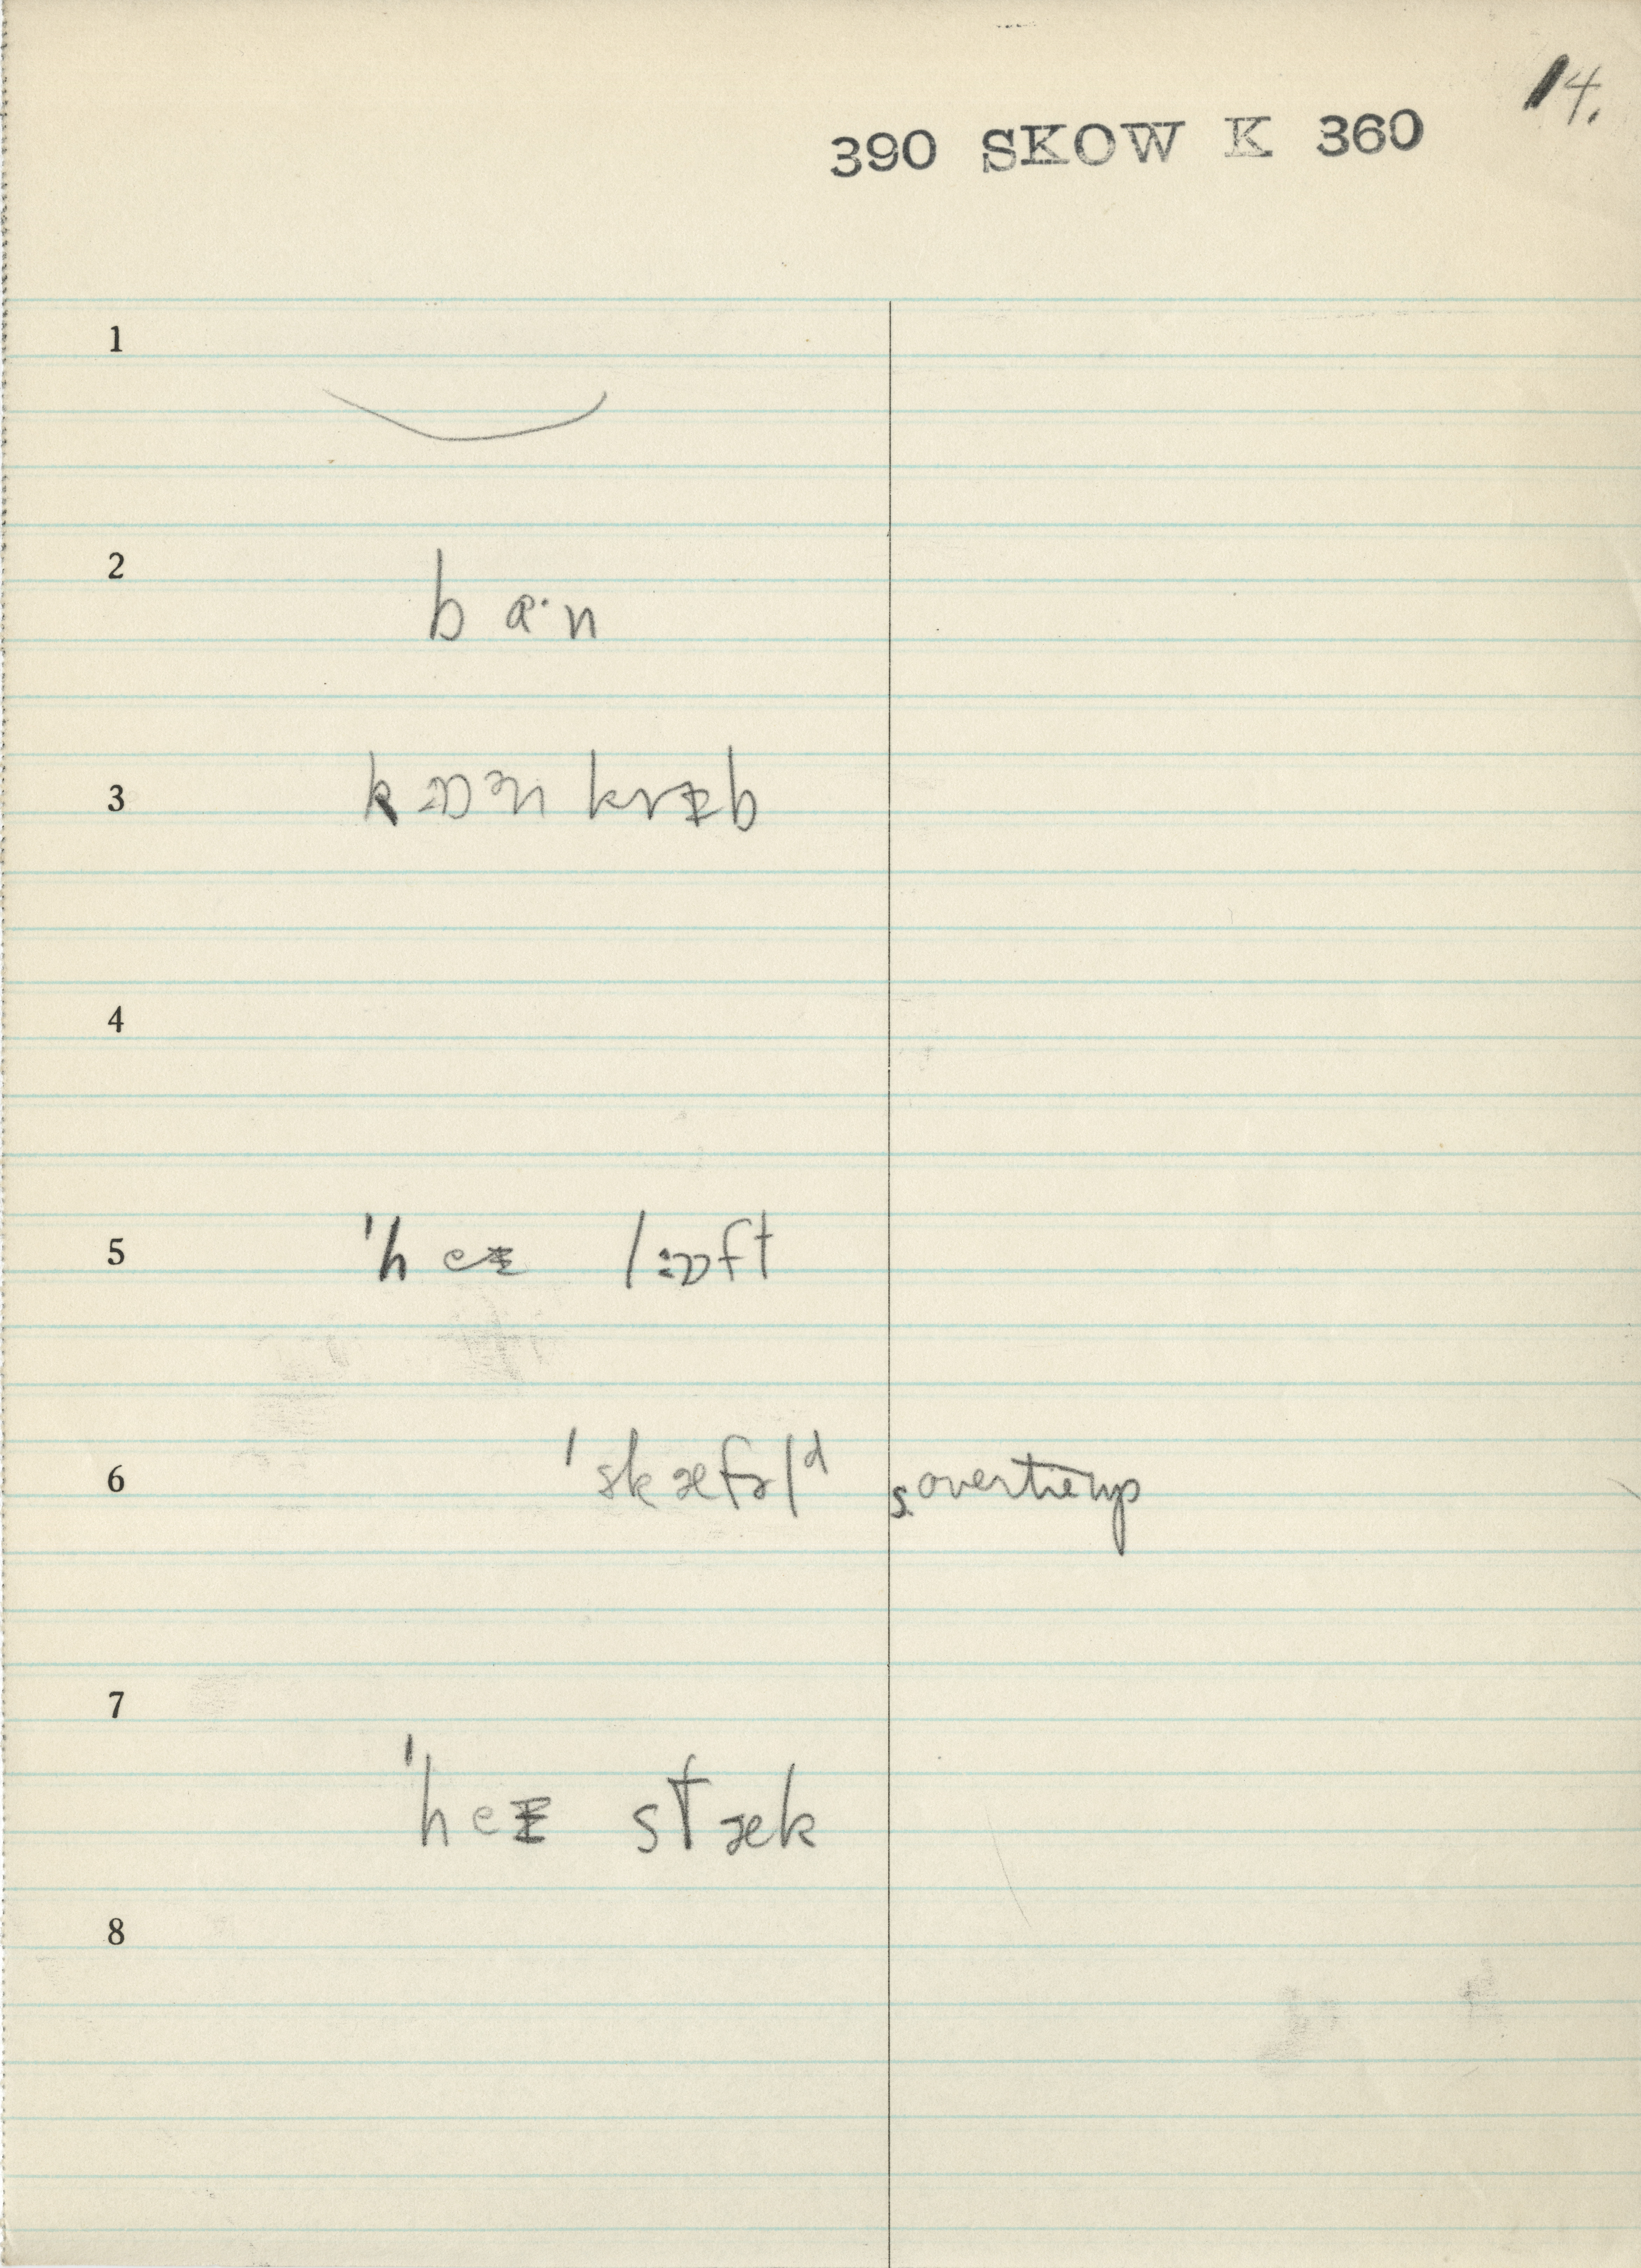 14.
390 SKOW K 360
1
2
ba·n
3
kɒən kræb
4
5
'heɪ lɒft
6
'skæfəlᵈ s. overtieup
7
'heɪ stæk
8